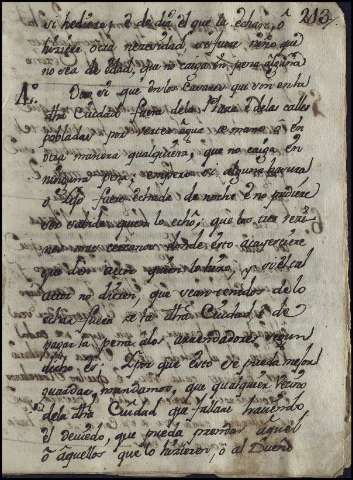 213
si hediere, ò de dia el que la echare, ò
hiziere otra nezesidad, se fuere niño que
no sea de edad, que no caiga en pena alguna
4º. Otro si que en los Carneros que son en la
dha Ciudad fuera de la Plaza è de las calles
pobladas por verter agua de mano, ò en
otra manera qualquiera, que no caiga en
ninguna pena, empero si alguna basura
ò fuere echada de noche è no pudiere
ser sabido quien lo echo, que los tres vezi
nos mas cercanos donde esto acaesciere
que den quien lo hizo, y si el tal
no dizen, que sean tenidos de lo
echar fuera de la dha Ciudad è de
pagar la pena a los arrendadores segun
dicho es. Y por que esto se pueda mejor
guardar, mandamos, que qualquier Vezino
de la dha Ciudad que fallare haciendo
el deviedo, que pueda prendar àquel
ò àquellos que lo hizieren, ò al Dueño